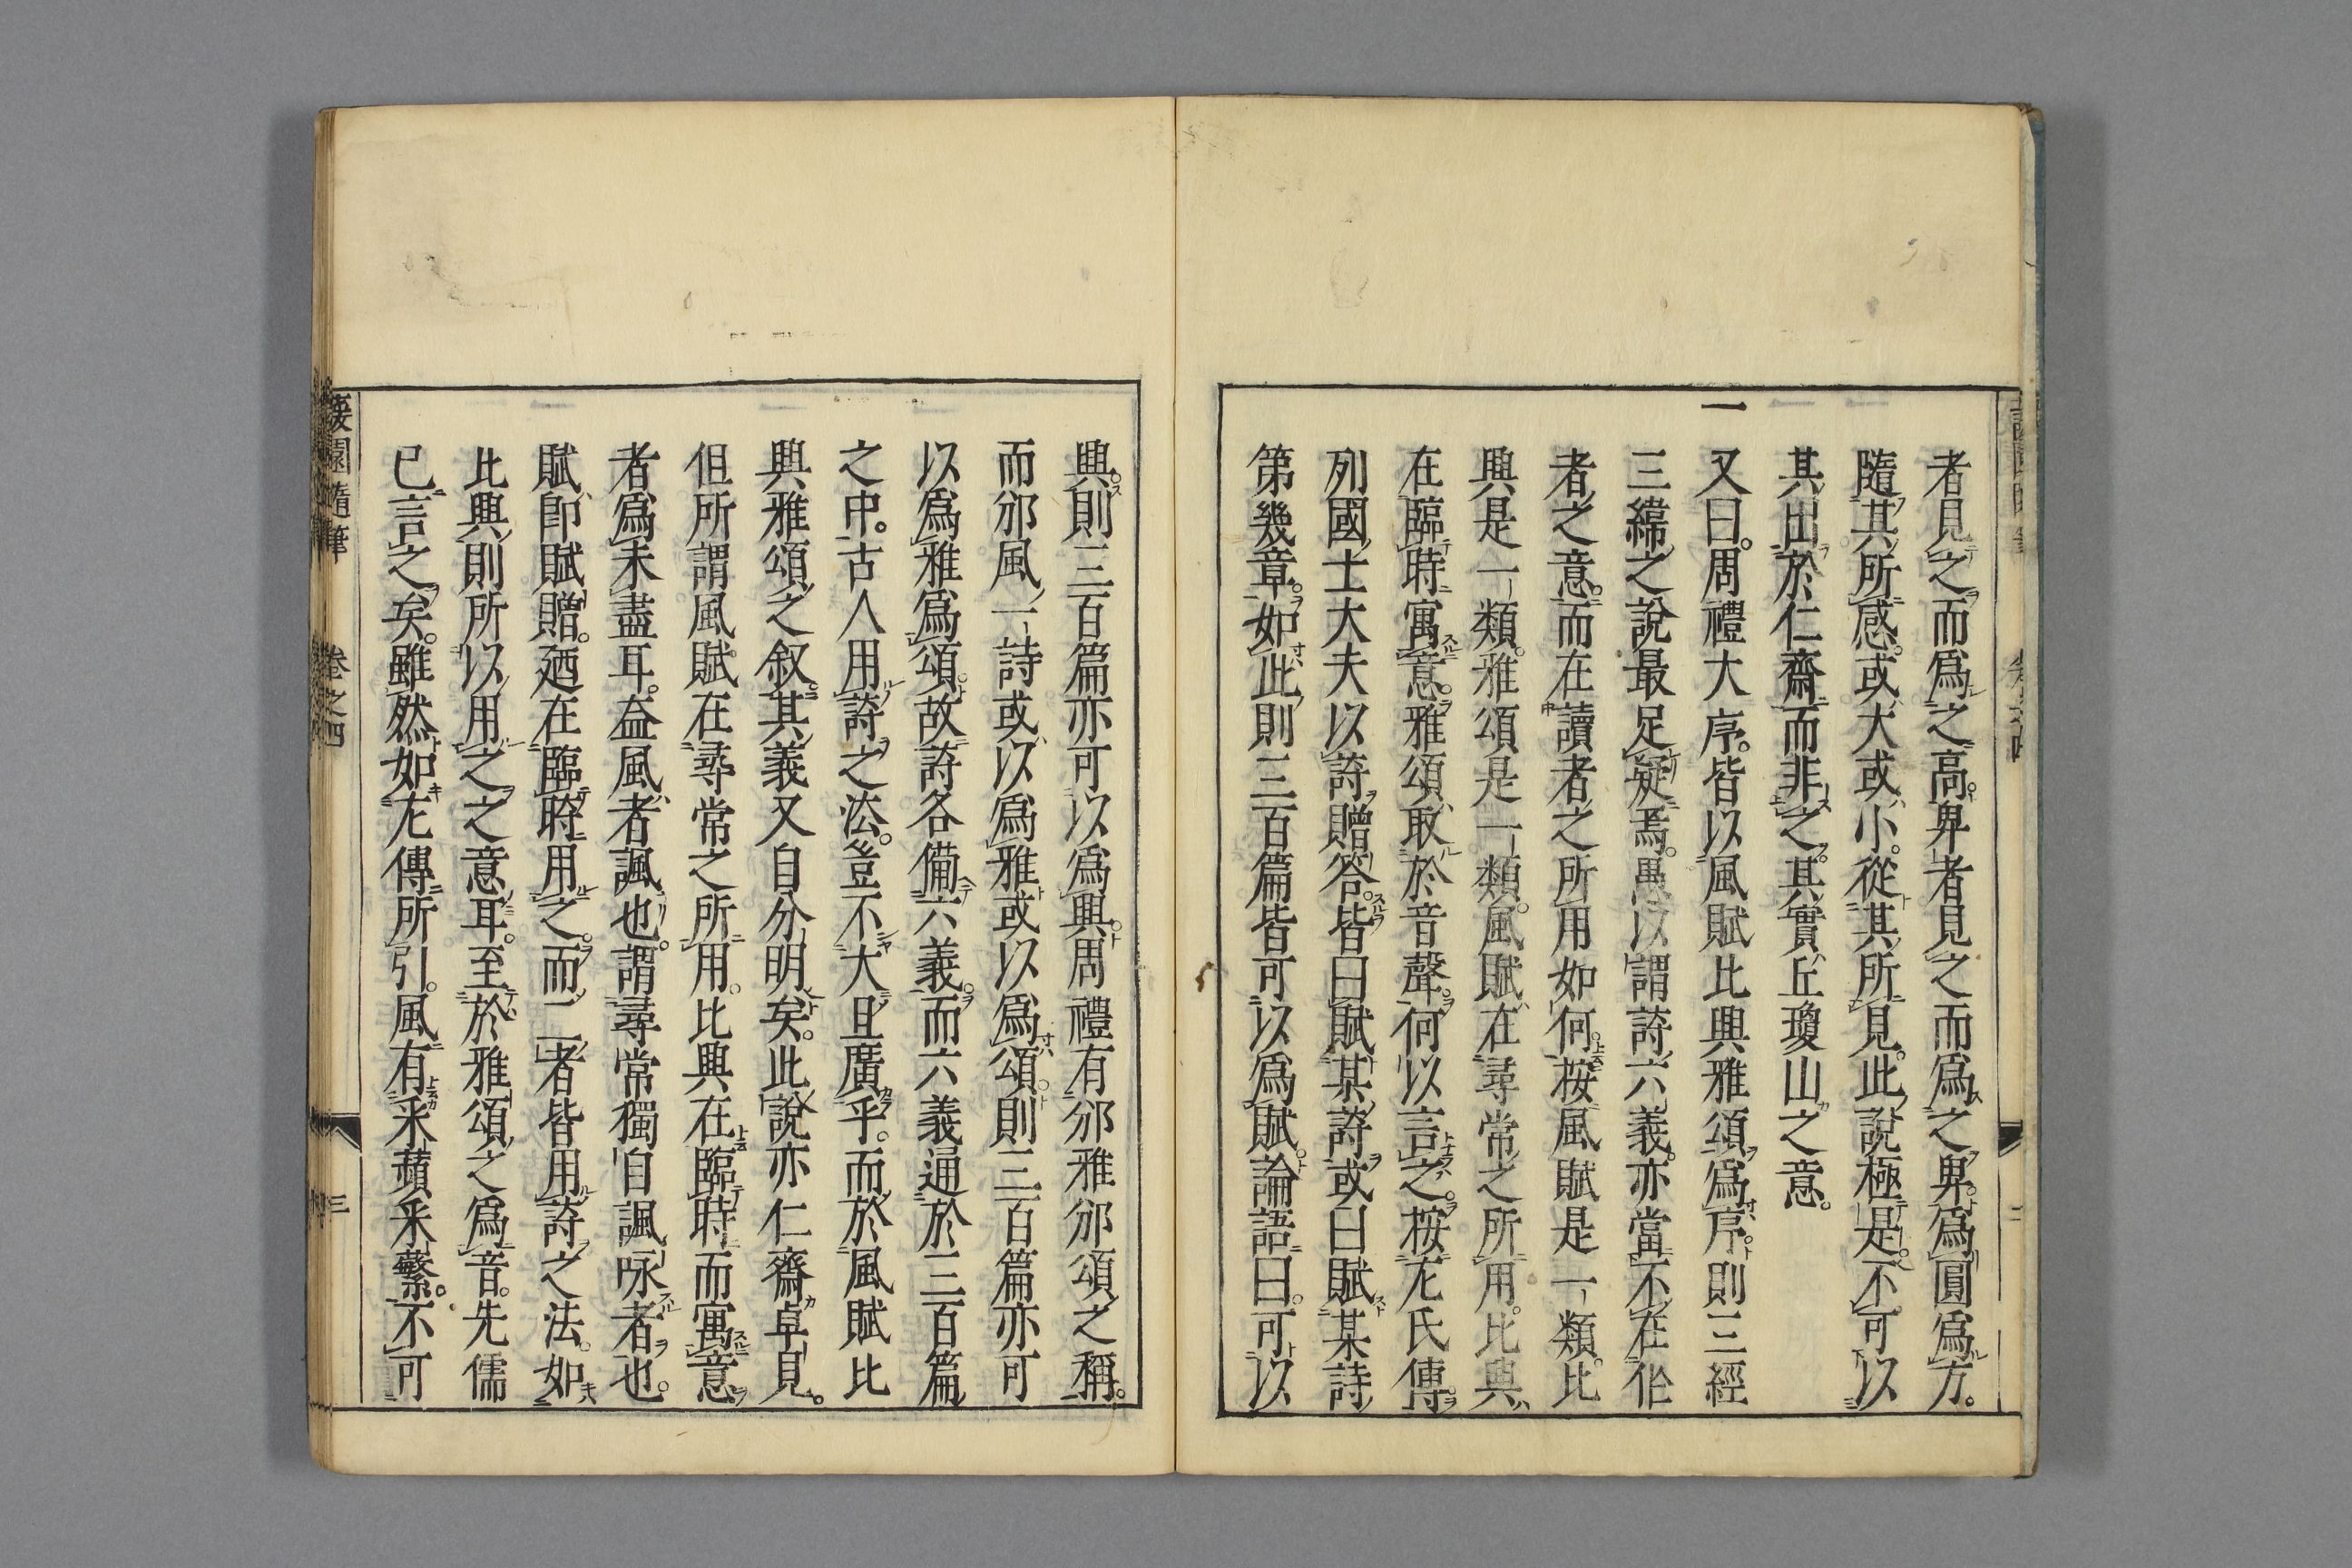 者見之而爲之高卑者見之而爲之卑爲圓爲方。
隨其所感。或大或小。從其所見。此說極是。不可以
其出於仁齋而非之。其實丘瓊山之意。
一又曰。周禮大序。皆以風賦比興雅頌爲序。則三經
三緯之說最足疑焉。愚以謂詩六義。亦當不在作
者之意。而在讀者之所用如何。按風賦是一類。比
興是一類。雅頌是一類。風賦在尋常之所用。比興
在臨時寓意。雅頌取於音聲。何以言之。按左氏傳。
列國士大夫以詩贈答。皆曰賦某詩或曰賦某詩
第幾章。如此則三百篇皆可以爲賦。論語曰。可以
興。則三百篇亦可以爲興。周禮有邠雅邠頌之稱。
而邠風一詩或以爲雅或以爲頌。則三百篇亦可
以爲雅爲頌。故詩各備六義。而六義通於三百篇
之中。古人用詩之法。豈不大且廣乎。而於風賦比
興雅頌之叙。其義又自分明矣。此說亦仁齋卓見。
但所謂風賦在尋常之所用。比興在臨時而寓意
者爲未盡耳。益風者諷也。謂尋常獨自諷咏者也。
賦卽賦贈。廼在臨時用之。而二者皆用詩之法。如
比興則所以用之之意耳。至於雅頌之爲音。先儒
已言之矣。雖然如左傳所引。風有采蘋采蘩。不可
蘐園隨筆 卷之四 三